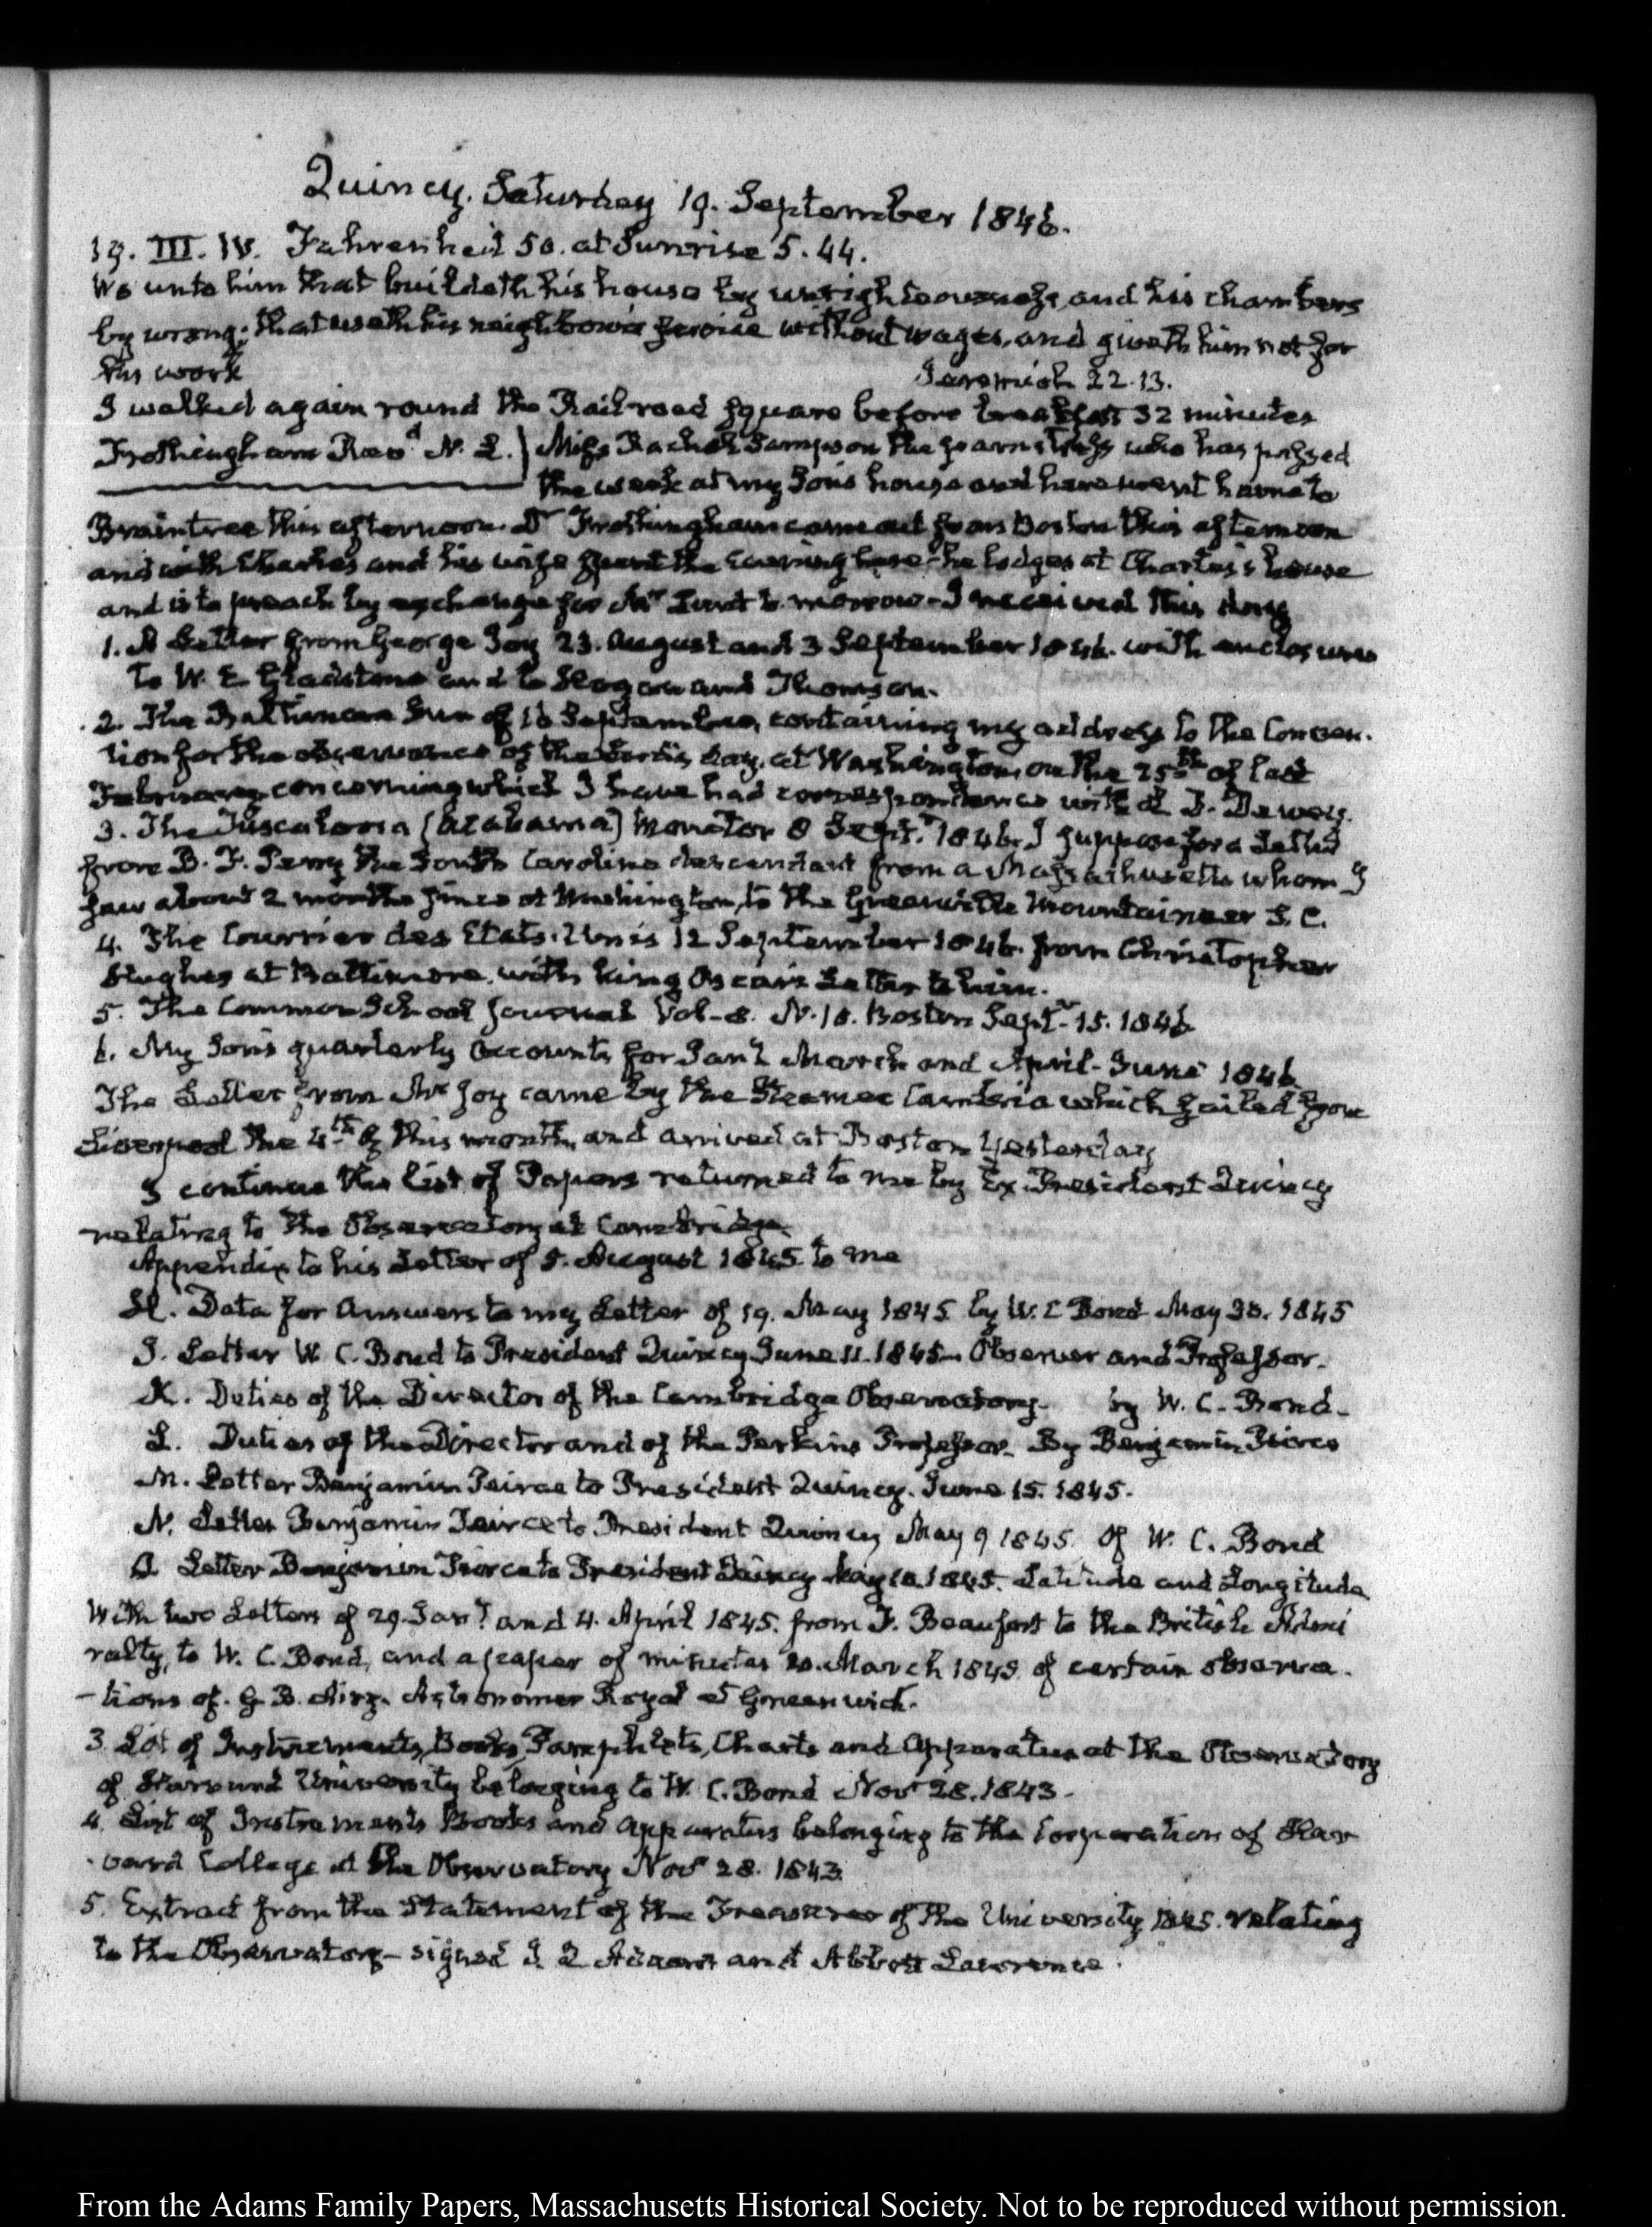 Quincy. Saturday 19. September 1846.
19. III. IV. Fahrenheit 50. at Sunrise 5.44.
Wo unto him that buildeth his house by unrighteousness, and his chambers
by wrong; that useth his neighbour's service without wages, and giveth him not for
his work Jeremiah 22.13.
I walked again round the Rail-road square before breakfast 32 minutes
Frothingham Revd. N. L. } Miss Rachel Sampson the seamstress who has passed
the week at my Son's house and here went home to
Braintree this afternoon. Dr Frothingham came out from Boston this afternoon
and with Charles and his wife spent the evening here—he lodges at Charles's house
and is to preach by exchange for Mr Lunt to-morrow—I received this day
1. A Letter from George Joy 23. August and 3 September 1846. with enclosures
to W. E. Gladstone and to and Thomson.
2. The Baltimore Sun of 16 September, containing my address to the Conven-
tion for the observance of the Lord's day, at Washington, on the 25th of last
February concerning which I have had correspondence with D. Dewey.
3. The Tuscaloosa (Alabama) Monitor 8 Septr. 1846. I suppose for a Letter
from B. F. Perry the South Carolina descendant from a Massachusetts whom I
saw about 2 months since at Washington, to the Greenville Mountaineer S. C.
4. The Courrier des Etats-Unis 12 September 1846. from Christopher
Hughes at Baltimore. with king Oscar's Letter to him.
5. The Common School Journal Vol-8. N. 18. Boston Septr. 15. 1846
6. My Son's quarterly accounts for Jany. March and April-June 1846
The Letter from Mr Joy came by the Steamer Cambria which sailed from
Liverpool the 4th of this month, and arrived at Boston Yesterday
I continue the list of Papers returned to me by Ex-President Quincy
relating to the Observatory at Cambridge
Appendix to his Letter of 5. August 1845 to me
H. Data for Answers to my Letter of 19. May 1845 by W. C Bond May 30. 1845
I. Letter W. C. Bond to President Quincy June 11. 1845—Observer and Professor.
K. Duties of the Director of the Cambridge Observatory— by W. C. Bond—
L. Duties of the Director and of the Perkins Professor. By Benjamin Pierce
M. Letter Benjamin Peirce to President Quincy. June 15. 1845.
N. Letter Benjamin Peirce to President Quincy May 9 1845. Of W. C. Bond
O. Letter Benjamin Pierce to President Quincy May 10. 1845. Latitude and Longitude
With two Letters of 29. Jany. and 4. April 1845. from F. Beaufort to the British Admi
ralty, to W. C. Bond, and a paper of minutes 20. March 1845. of certain observa-
-tions of G. B. Airy. Astronomer Royal at Greenwich.
3 List of Instruments, Books, Pamphlets, Charts and Apparatus at the Observatory
of Harvard University belonging to W. C. Bond Novr 28. 1843.
4. List of Instruments Books and Apparatus belonging to the Corporation of Har
-vard College at the Observatory Novr 28. 1843.
5. Extract from the Statement of the Treasurer of the University 1845. relating
to the Observatory—signed J. Q Adams and Abbott Lawrence.
From the Adams Family Papers, Massachusetts Historical Society. Not to be reproduced without permission.